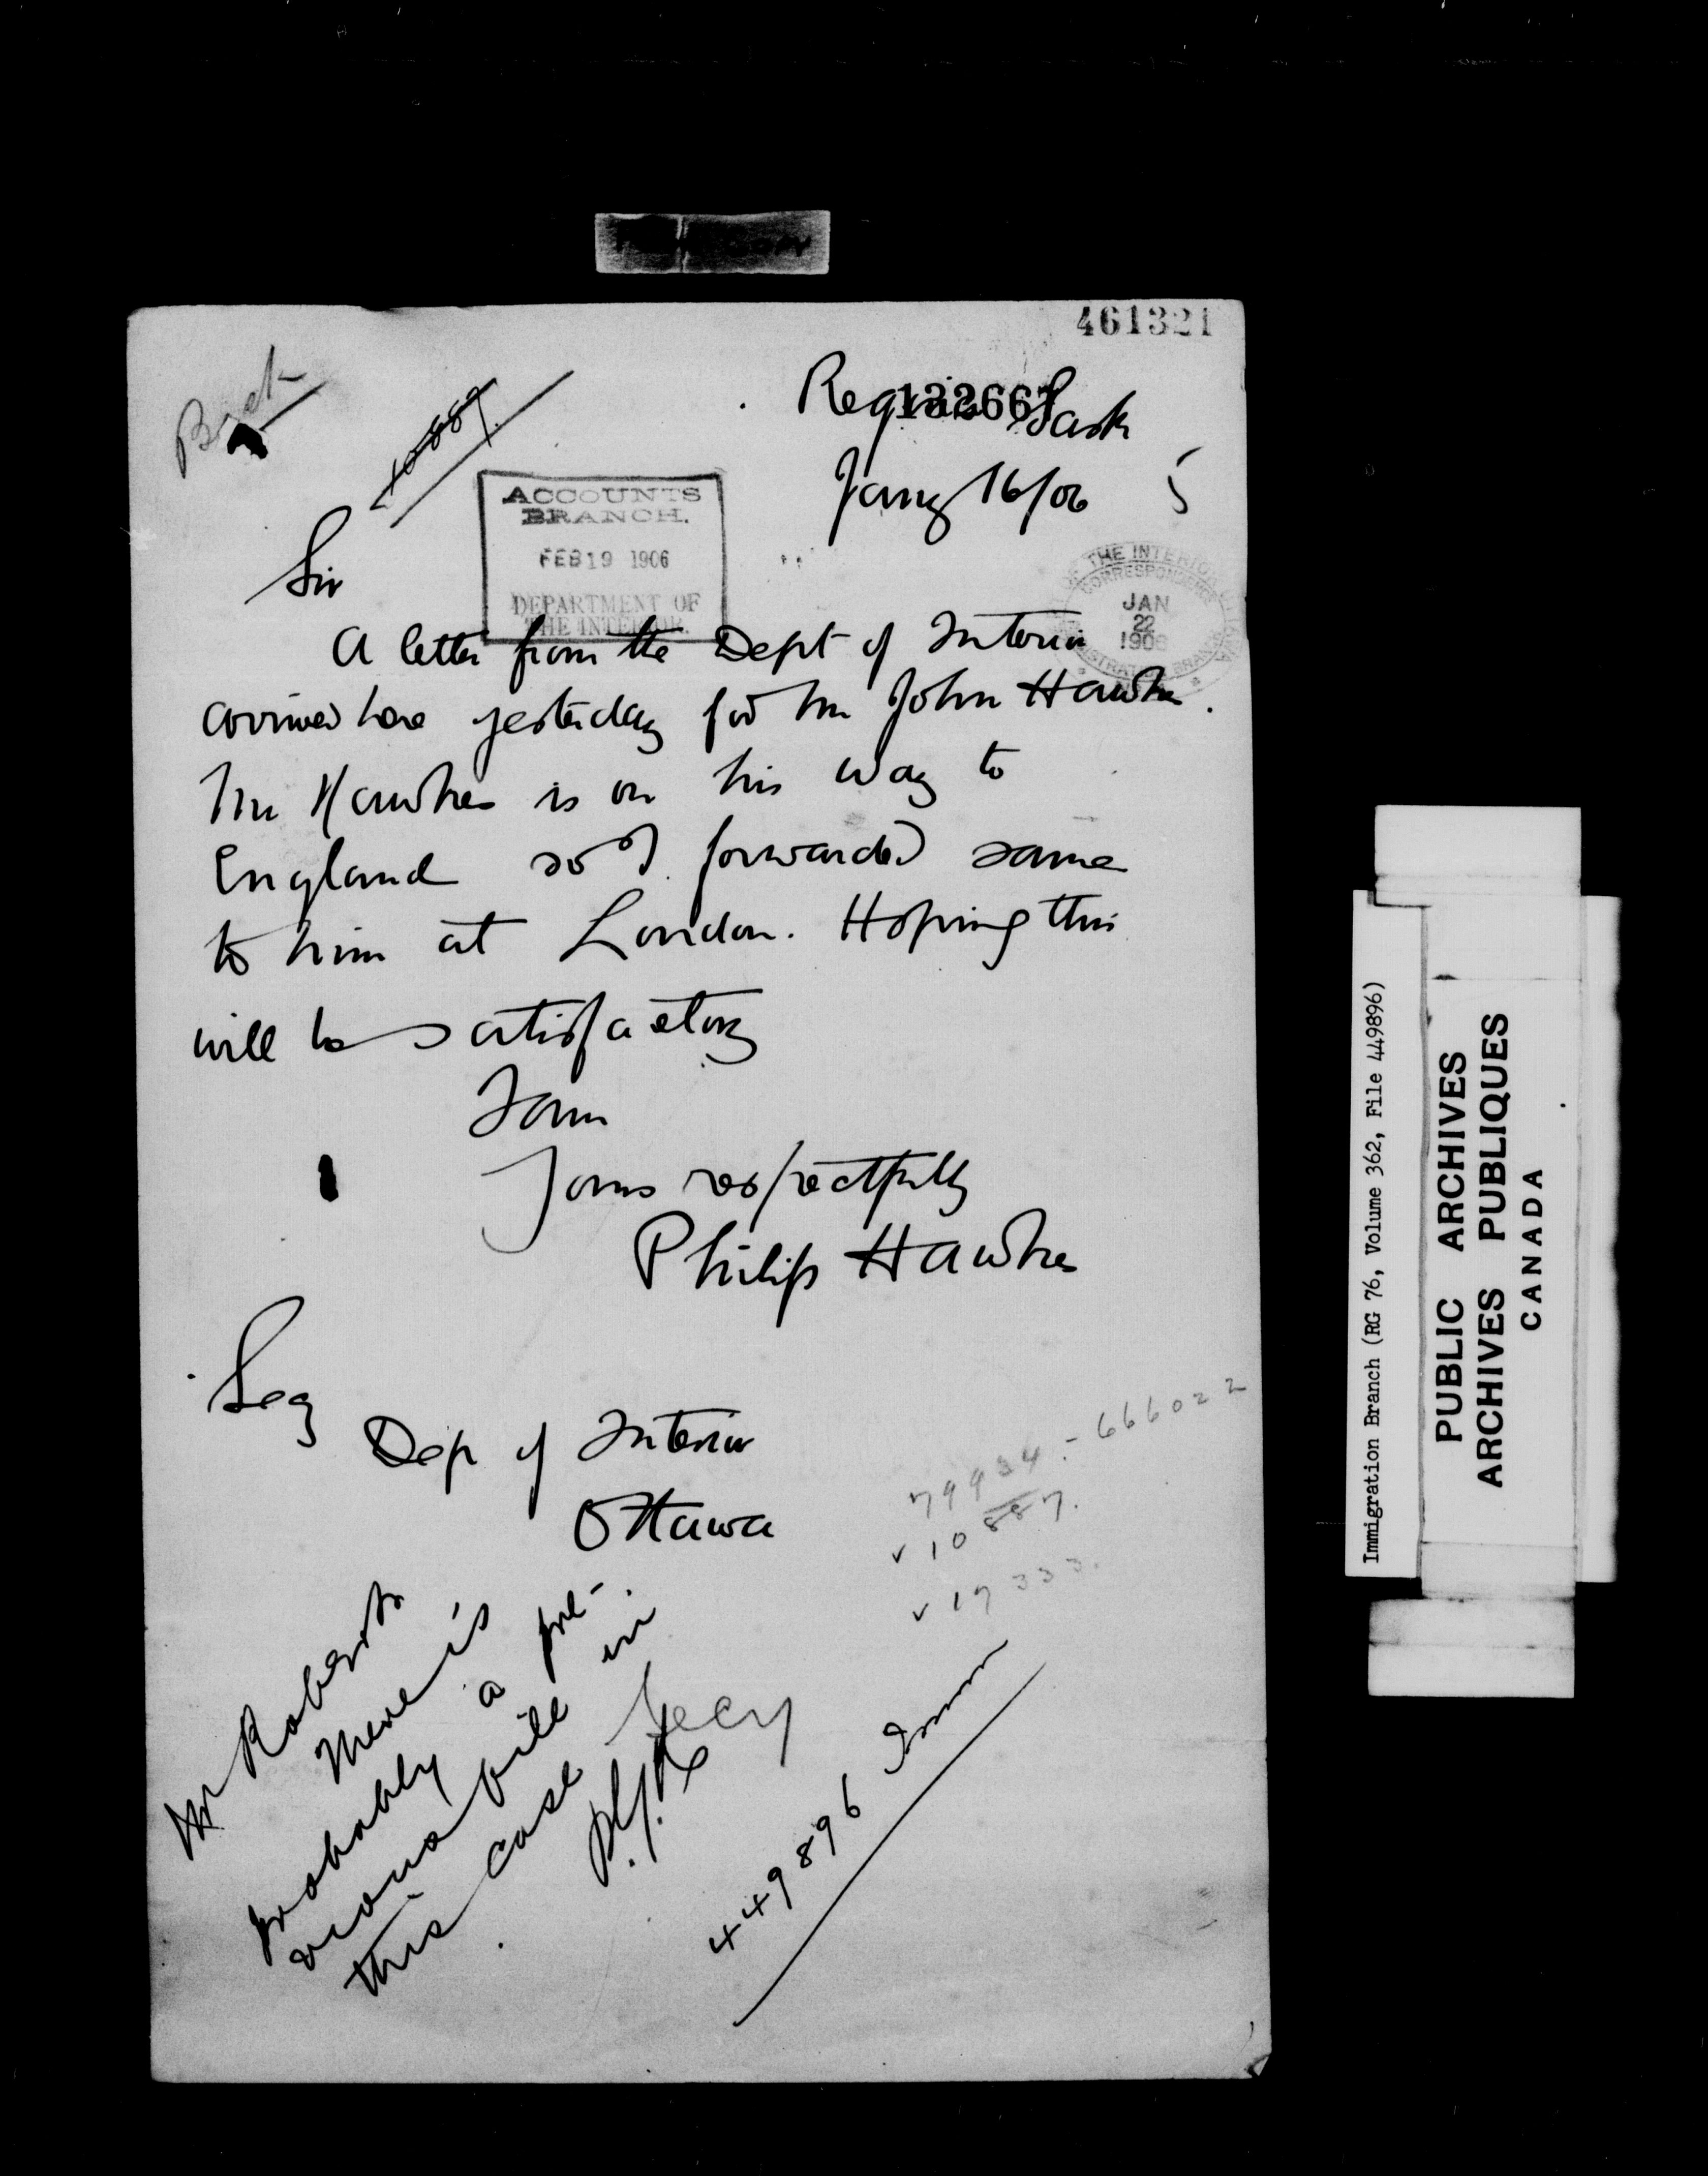 461321
132667
Regina Sask
Jany 16/06
5
Back
10889
ACCOUNTS
BRANCH.
FEB 19 1906
DEPARTMENT OF
THE INTERIOR.
THE INTERIOR
CORRESPONDENCE
JAN
22
1906
BRANCH
Sir
A letter from the Dept of Interior
arrived here yesterday for Mr John Hawkes.
Mr Hawkes is on his way to
England so I forwarded same
to him at London. Hoping this
will be satisfactory
I am
Yours respectfully
Philip Hawkes
Secy
Dep of Interior
Ottawa
79934 - 666022
✓ 10887.
✓ 17333.
Mr Roberts
There is
probably a pre-
vious file in
this case
Secy
449896 Imm
Immigration Branch (RG 76, Volume 362, File 449896)
PUBLIC ARCHIVES
ARCHIVES PUBLIQUES
CANADA